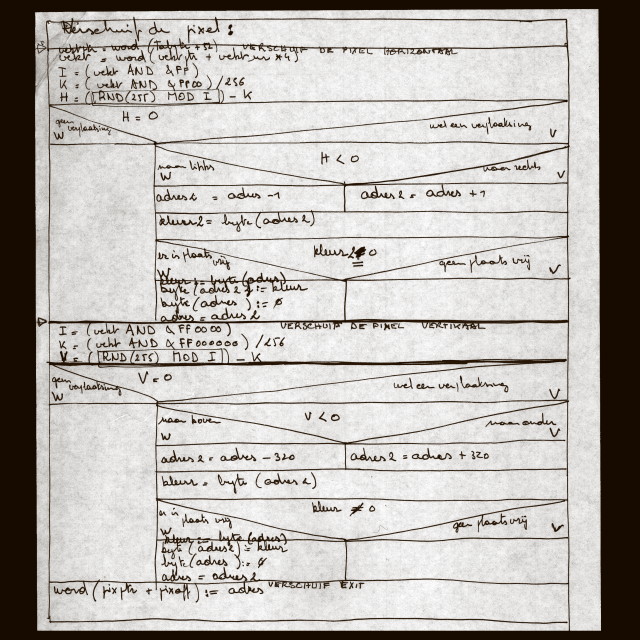 Verschuif de pixel:
VERSCHUIF DE PIXEL HORIZONTAAL
I = (vekt AND &FF)
K = (vekt AND &FF00) /256
H = (RND(255) MOD I) - K
H = 0
geen verplaatsing
wel een verplaatsing
W
V
H < 0
naar links
naar rechts
W
V
adres2 = adres -1
adres2 = adres +1
kleur2 = byte (adres2)
kleur2 0
er is plaats vrij
geen plaats vrij
W
V
kleur := byte (adres)
byte (adres2) := kleur
byte (adres) := 0
adres = adres2
VERSCHUIF DE PIXEL VERTIKAAL
I = (vekt AND &FF0000)
K = (vekt AND &FF000000) /256
V = (RND(255) MOD I) - K
V = 0
geen verplaatsing
wel een verplaatsing
W
V
V < 0
naar boven
naar onder
W
V
adres2 = adres - 320
adres2 = adres + 320
kleur = byte (adres2)
kleur ≠ 0
er is plaats vrij
geen plaats vrij
W
V
kleur := byte (adres)
byte (adres2) = kleur
byte (adres) := 0
adres = adres2
VERSCHUIF EXIT
word (pixptr + pixoff) := adres